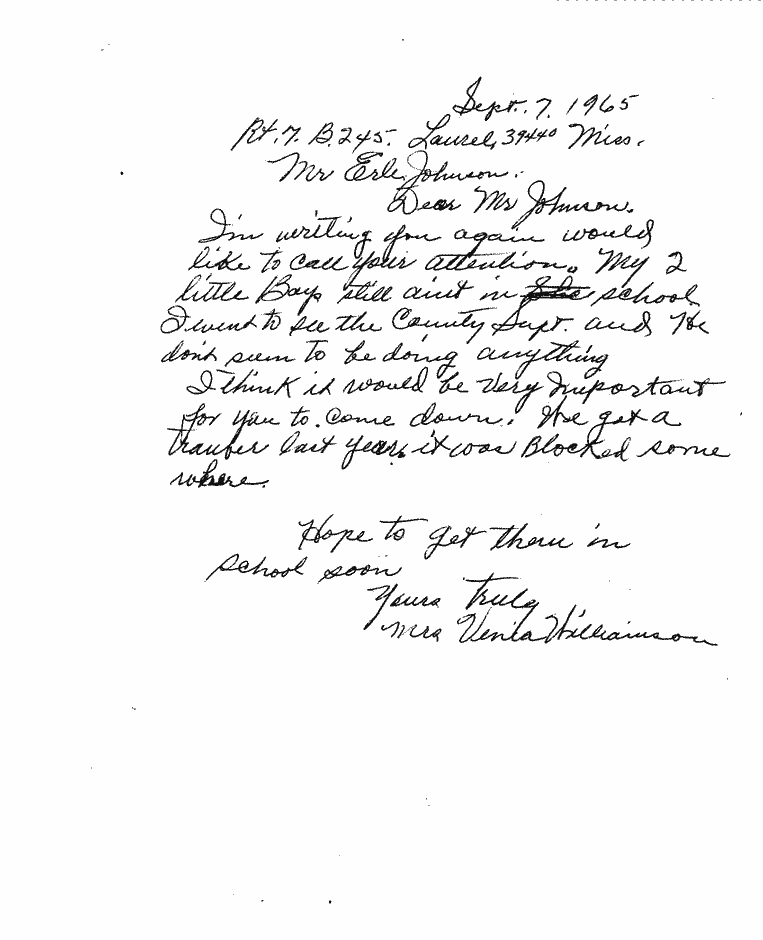 Sept. 7. 1965
Rt. 7. B. 245. Laurel, 39440 Miss.
Mr Erle Johnson.
Dear Mr Johnson.
I'm writing you again would
like to call your attention. My 2
little Boys still aint in school
I went to see the County Supt. and He
don't seem to be doing anything
I think it would be Very Important
for you to. come down. We got a
last year, it was Blocked some
where.
Hope to get them in
school soon
Yours Truly
Mrs Venia Williamson